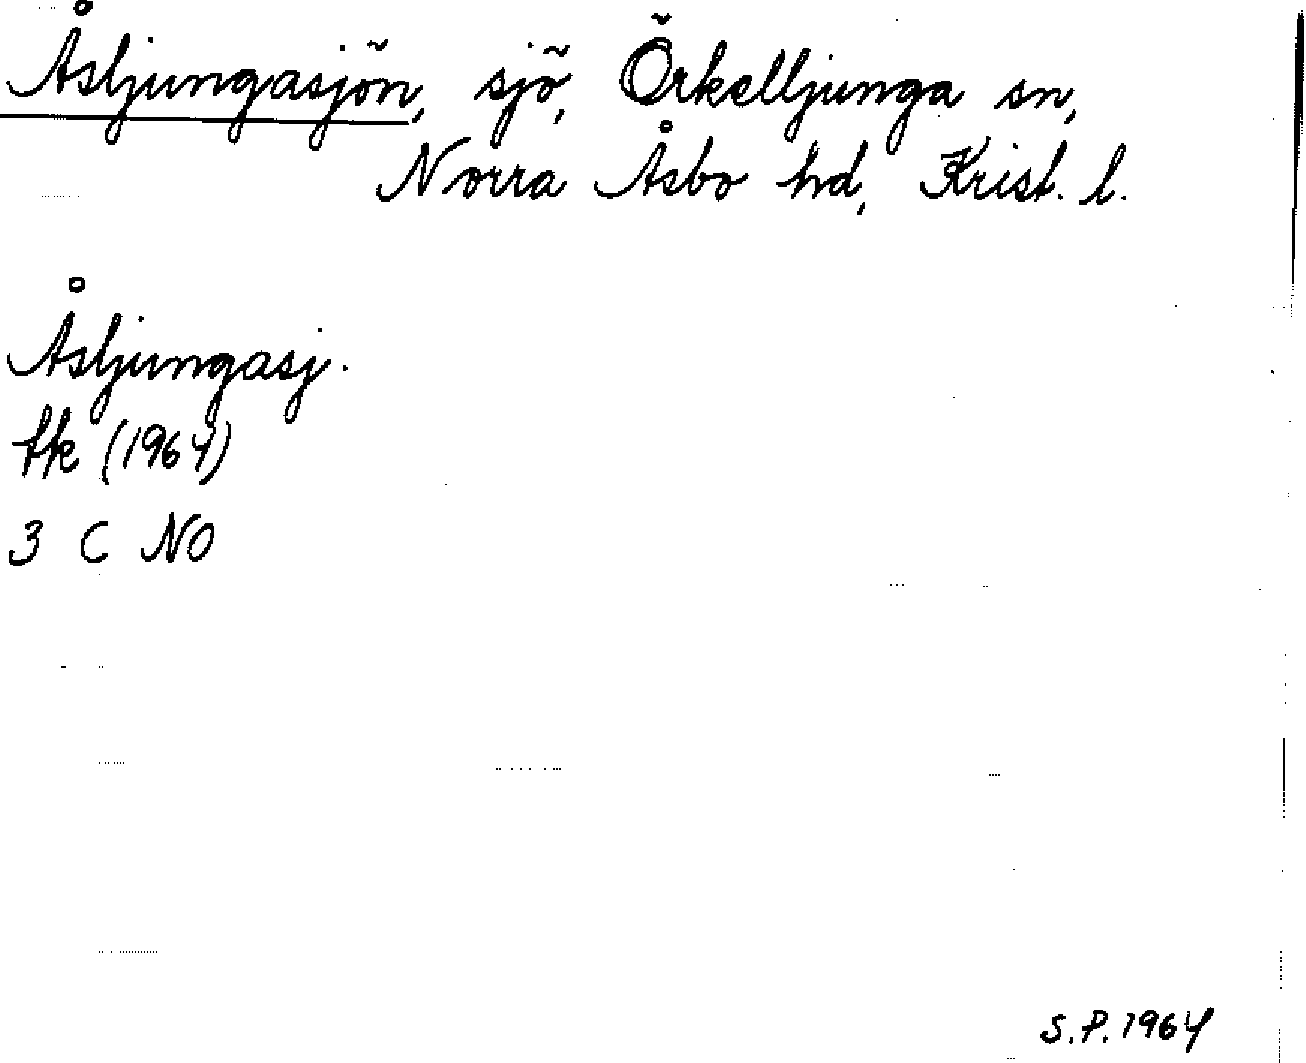 Åsljungasjön, sjö, Örkelljunga sn,
Norra Åsbo hd, Krist. l.
Åsljungasj.
tk (1964)
3 C NO
S.P. 1964